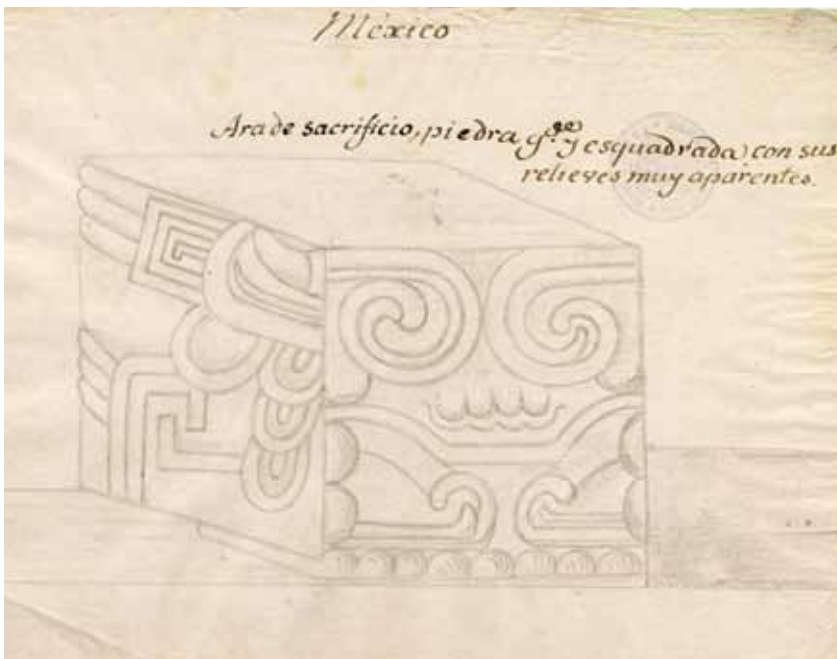 México
Ara de sacrificio, piedra g.de y esquadrada con sus
relieves muy aparentes.